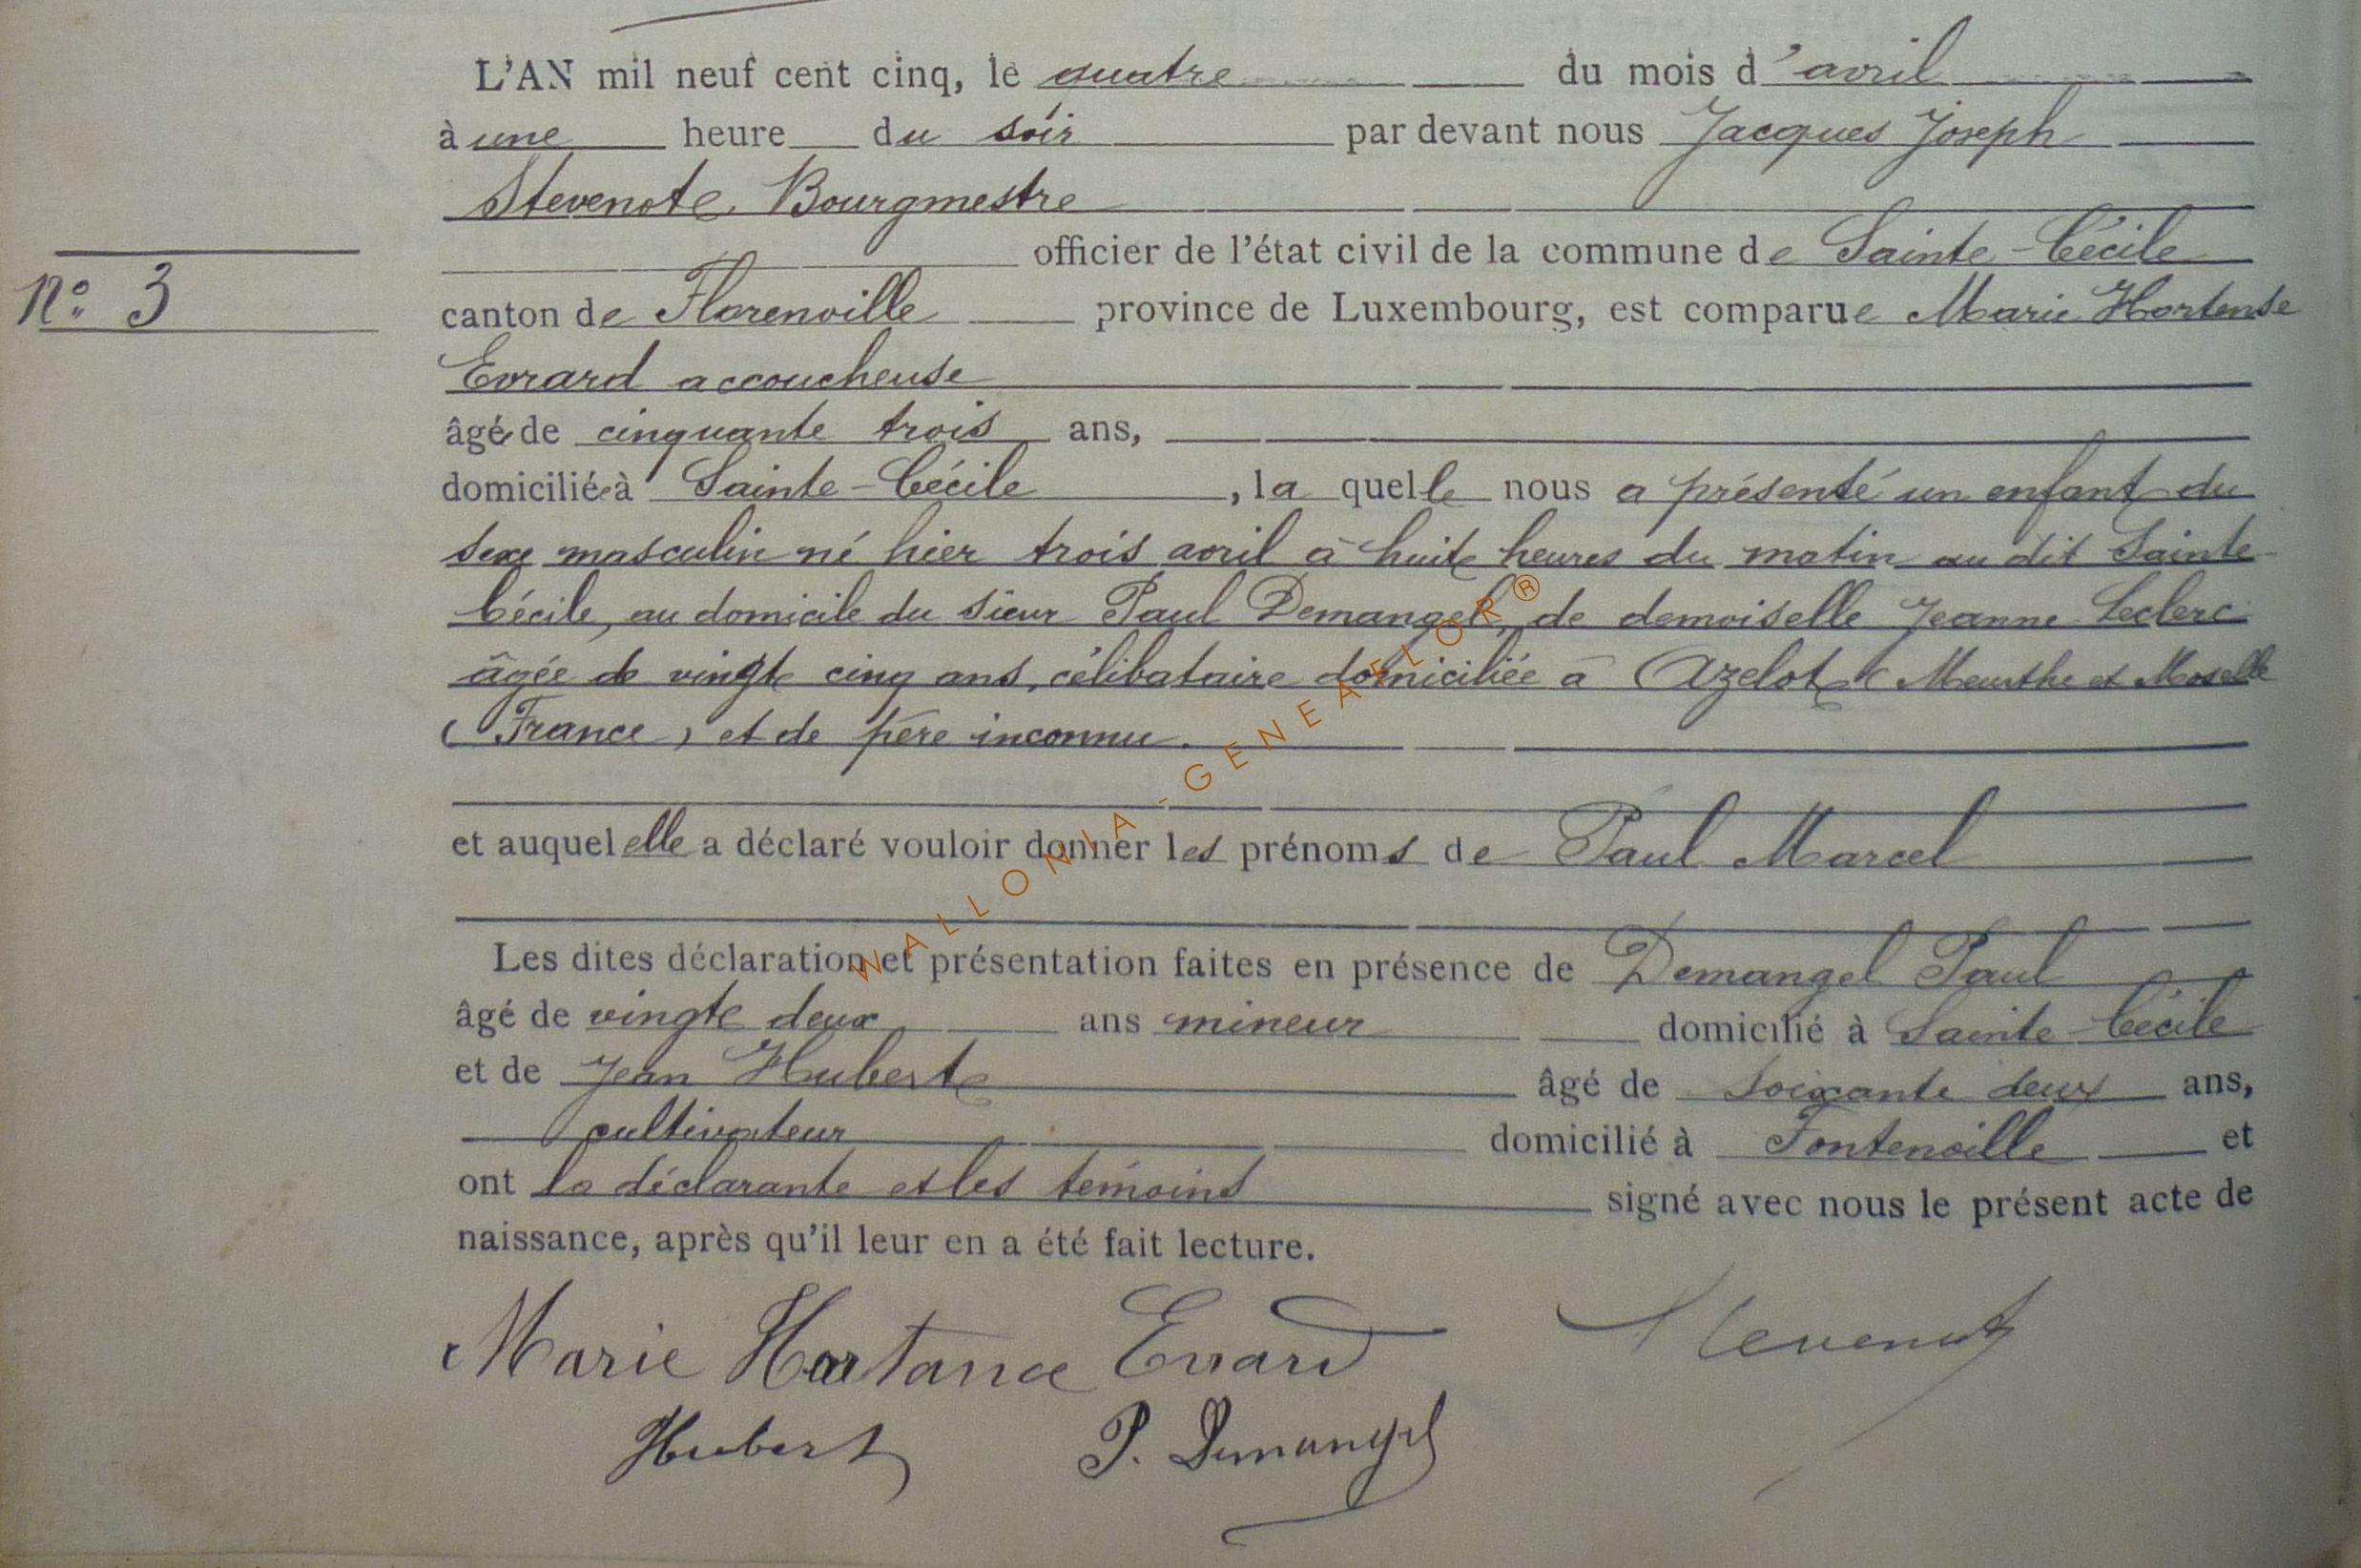 L'AN mil neuf cent cinq, le quatre du mois d'avril
à une heure du soir par devant nous Jacques Joseph
Stevenote, Bourgmestre
officier de l'état civil de la commune de Sainte-Cécile
N° 3
canton de Florenville province de Luxembourg, est comparue Marie Hortense
Evrard accoucheuse
âgée de cinquante trois ans,
domiciliée à Sainte-Cécile, la quelle nous a présenté un enfant du
sexe masculin né hier trois avril à huit heures du matin au dit Sainte-
Cécile, au domicile du sieur Paul Demangel, de demoiselle Jeanne Leclerc
âgée de vingt cinq ans, célibataire domiciliée à Azelot (Meurthe et Moselle
(France) et de père inconnu.
et auquel elle a déclaré vouloir donner les prénoms de Paul Marcel
Les dites déclaration et présentation faites en présence de Demangel Paul
âgé de vingt deux ans mineur domicilié à Sainte Cécile
et de Jean Hubert âgé de soixante deux ans,
cultivateur domicilié à Fontenoille et
ont la déclarante et les témoins signé avec nous le présent acte de
naissance, après qu'il leur en a été fait lecture.
Marie Hortance Evrard Stevenot
Hubert P. Demangel
WALLONIA-GENEAFLOR®